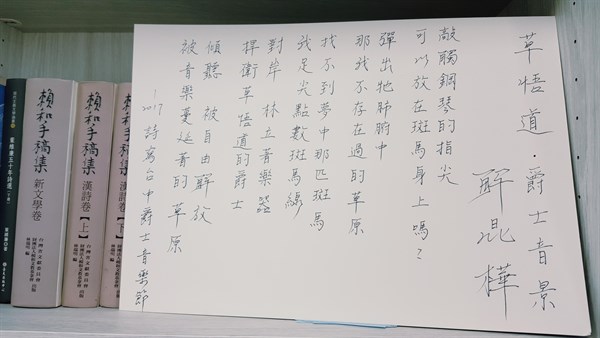 草悟道·爵士音景
解昆樺
敲觸鋼琴的指尖
可以放在斑馬身上嗎？
彈出牠肺腑中
那我不存在過的草原
找不到夢中那匹斑馬
我足尖點數斑馬線
對岸 林立著樂器
捍衛草悟道的爵士
傾聽 被自由解放
被音樂蔓延著的草原
—2017 詩寫台中爵士音樂節
賴和手稿集
漢詩卷【上】
賴和手稿集
新文學卷
林瑞明 編
葉維廉五十年詩選